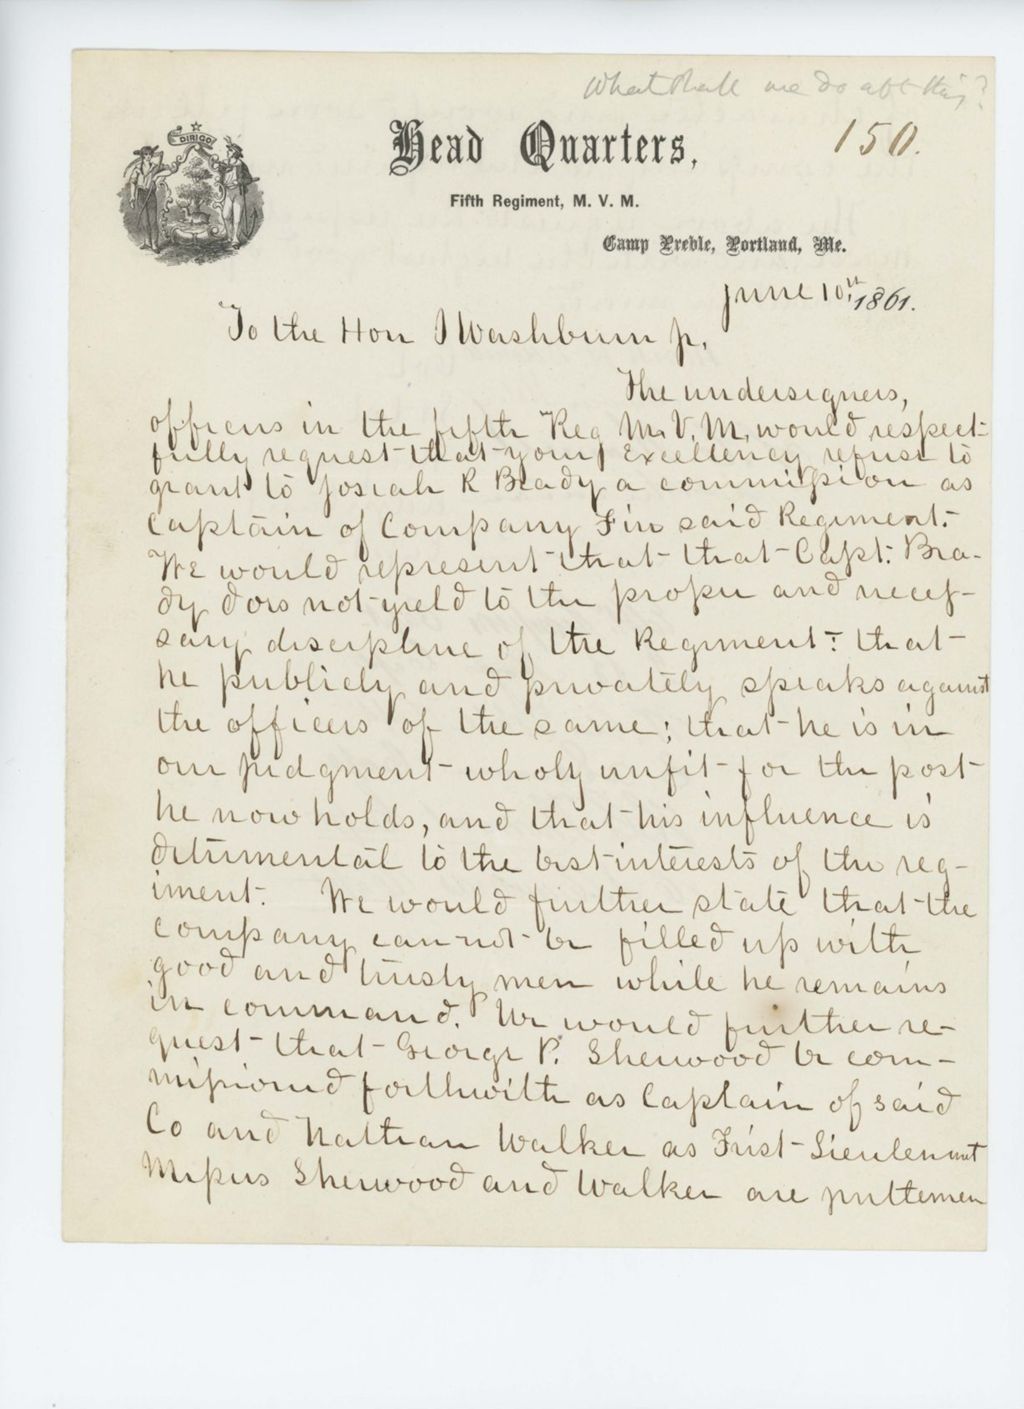 What shall we do abt this?
150.
DIRIGO
Head Quarters,
Fifth Regiment, M. V. M.
Camp Preble, Portland, Me.
June 10th 1861.
To the Hon I Washburn jr,
The undersigners,
officers in the fifth Reg M. V. M, would respect-
fully request that your Excellency refuse to
grant to Josiah R Brady a commission as
Captain of Company F in said Regiment.
We would represent that that Capt. Bra-
dy does not yield to the proper and neces-
sary discipline of the Regiment: that
he publicly and privately speaks against
the officers of the same; that he is in
our judgment wholy unfit for the post
he now holds, and that his influence is
detrimental to the best interests of the reg-
iment. We would further state that the
company can not be filled up with
good and trusty men while he remains
in command. We would further re-
quest that George P. Sherwood be com-
missioned forthwith as Captain of said
Co and Nathan Walker as First Lieutenant
Messrs Sherwood and Walker are gentlemen